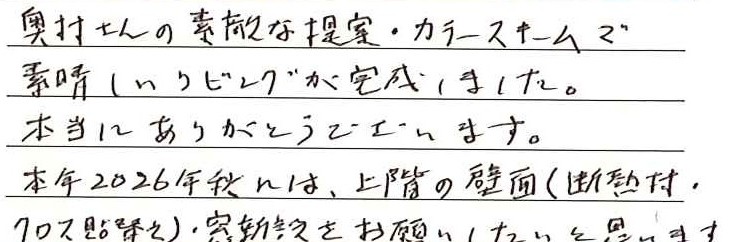 奥村さんの素敵な提案・カラースキームで
素晴しいリビングが完成しました。
本当にありがとうございます。
本年2026年秋には、上階の壁面(断熱材・
クロス貼替え)・窓新設をお願いしたいと思います